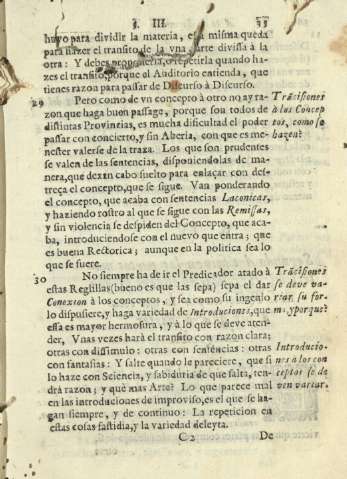 §. III. 35
huvo para dividir la materia, essa misma queda
para hazer el transito de la vna parte divissa à la
otra: Y debes proponerla, o repetirla quando ha-
zes el transito, porque el Auditorio entienda, que
tienes razon para passar de Discurso à Discurso.
29 Pero como de vn concepto à otro no ay ra-
zon que haga buen passage, porque son todos de
distintas Provinias, es mucha dificultad el poder
passar con concierto, y sin Aberia, con que es me-
nester valerse de la traza. Los que son prudentes
se valen de las sentencias, disponiendolas de ma-
nera, que dexen cabo suelto para enlaçar con des-
treça el concepto, que se sigue. Van ponderando
el concepto, que acaba con sentencias Laconicas,
y haziendo rostro al que se sigue con las Remissas,
y sin violencia se despiden del Concepto, que aca-
ba, introduciendose con el nuevo que entra; que
es buena Rectorica; aunque en la politica sea lo
que se fuere.
Trãcisiones
à los Concep
tos, como se
hazen?
30 No siempre ha de ir el Predicador atado à
estas Regillas (bueno es que las sepa) sepa el dar
Conexion à los conceptos, y sea como su ingenio
lo dispusiere, y haga variedad de Introduciones, que
essa es mayor hermosura, y à lo que se deve aten-
der, Vnas vezes harà el transito con razon clara;
otras con dissimulo: otras con sentẽcias: otras
con fantasias: Y salte quando le pareciere, que si
lo haze con Sciencia, y sabiduria de que salta, ten-
drà razon; y què mas Arte? Lo que parece mal
en las introduciones de improviso, es el que se ha-
gan siempre, y de continuo: La repeticion en
estas cosas fastidia, y la variedad deleyta.
Trãcisiones
se deve va-
riar su for-
ma, y porque?
Introducio-
nes à los con
ceptos se de
ven variar.
C 2 De